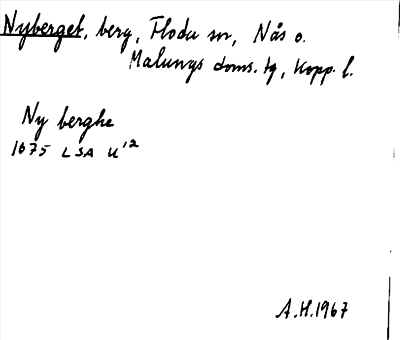 Nyberget, berg, Floda sn, Nås o.
Malungs doms. tg, Kopp. l.
Ny berghe
1675 LSA U'²
A.H. 1967